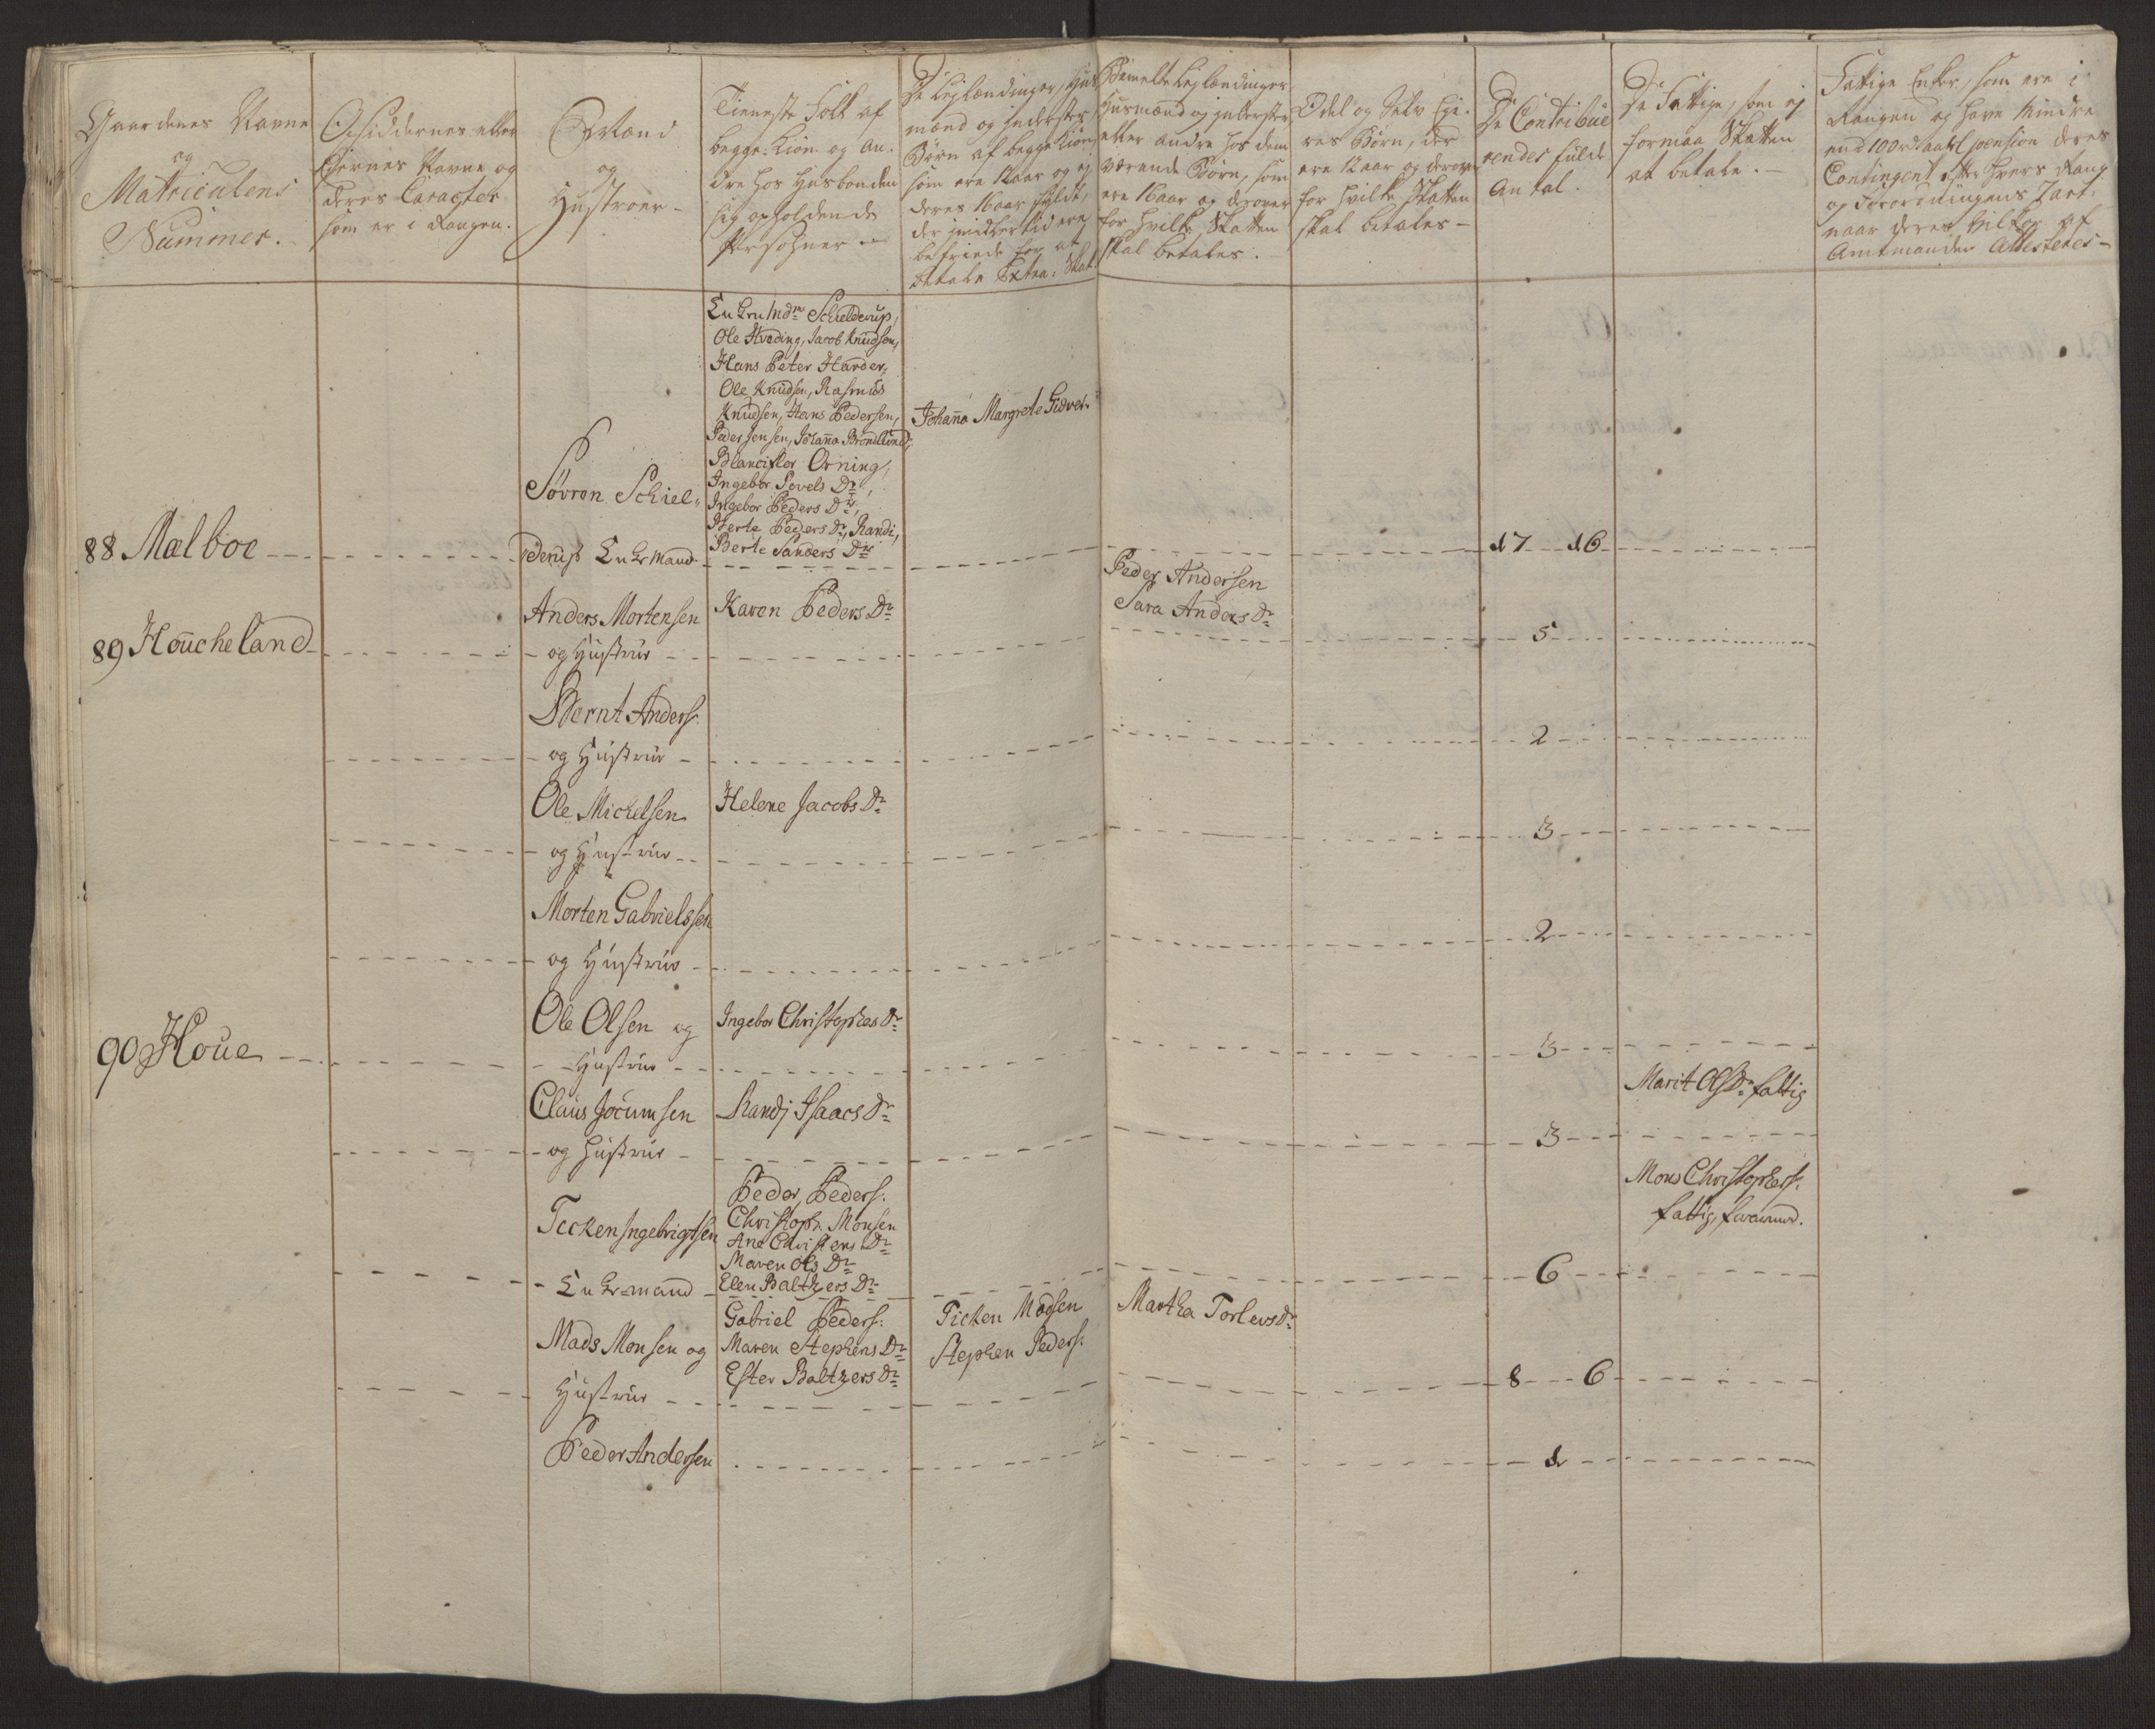 Gaardenes Navne
og
Matriculens
Nummer.
Opsiddernes eller
Eiernes Navne og
deres Caracter
som er i Rangen.
Mænd
og
Hustroer
Tieneste Folk af
begge Kiøn og An-
dre hos Husbonden
sig opholdende
Persohner
De Lejlændinger, Hus
mænd og Inderster
Børn af begge Kiøn,
som ere 12 aar og ej
deres 16 aar fyldt,
der imidlertid ere
befriede for at
betale Extra: Skat
Bemelte Lejlændinger
Husmænd og Inderster
eller andre hos dem
værende Børn, som
ere 16 aar og derover
for hvilke Skatten
skal betales.
Odel og Selv Eje-
res Børn, der
ere 12 aar og derover
for hvilke Skatten
skal betales
De Contribue
rendes fulde
Antal.
De Fattige, som ej
formaa Skatten
at betale.
Fattige Enker, som ere i
Rangen og have mindre
end 100 rd aarl pension deres
Contingent efter hvers Rang
og Forordningens Tart,
naar deres Vilkor af
Amtmanden Attesteres
88 Mælboe
Søvren Schiel-
derup Enkemand
Enken Mdm Schielderup,
Ole Hveding, Jacob Knudsen,
Hans Peter Harder,
Ole Knudsen, Rasmus
Knudsen, Hans Pedersen,
Peder Jensen, Johanna Brondlund,
Blanciflor Orning,
Ingebor Povels Dr,
Ingebor Peders Dr,
Berte Peders Dr, Randi,
Berte Sanders Dr
Johanna Margrete Gidver
17 16
89 Houcheland
Anders Mortensen
og Hustrue
Karen Peders Dr
Peder Andersen
Sara Anders Dr
5
Bernt Anders:
og Hustrue
2
Ole Michelsen
og Hustrue
Helene Jacobs Dr
3
Morten Gabrielssen
og Hustrue
2
90 Houe
Ole Olsen og
Hustrue
Ingebor Christophes Dr
3
Claus Jocumsen
og Hustrue
Randj Isaacs Dr
3
Marit Ols Dr fattig
Tecken Ingebrigtsen
Enkemand
Peder Peders:
Christoph. Monsen
Ane Christens Dr
Maren Ols Dr
Elen Baltzers Dr
6
Mons Christophers:
fattig
Mads Monsen og
Hustrue
Gabriel Peders:
Maren Stephens Dr
Ester Baltzers Dr
Ticken Madsen
Stephen Peders:
Martha Torlevs Dr
8 6
Peder Andersen
1